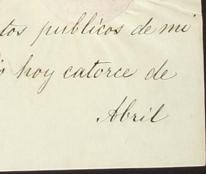 tos publicos de mi
o hoy catorce de
Abril